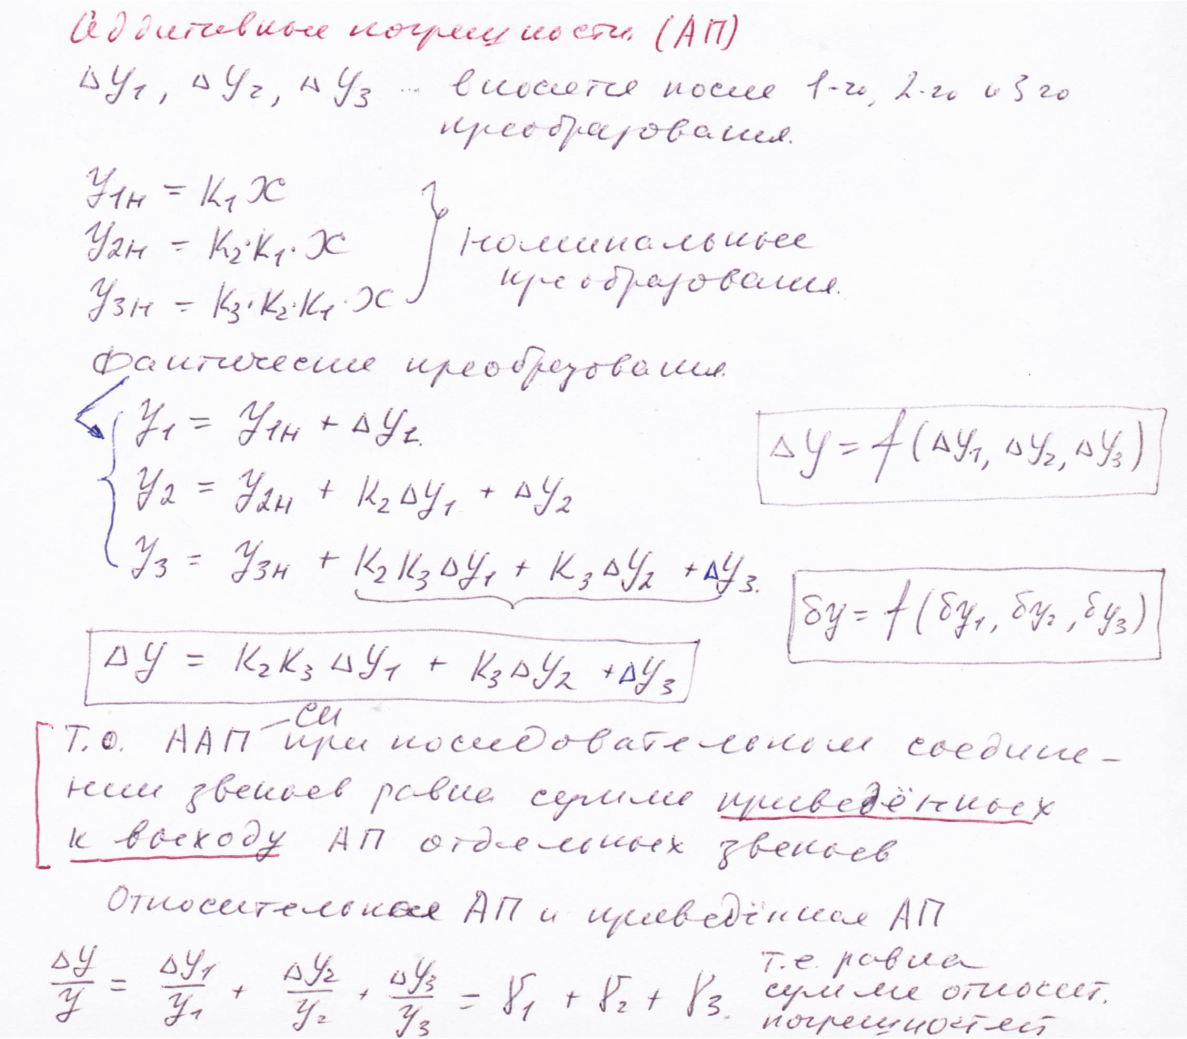 Аддитивные погрешности (АП)
ΔY₁, ΔY₂, ΔY₃ ... вносятся после 1-го, 2-го и 3го
преобразования.
Y₁ₙ = K₁X
Y₂ₙ = K₂·K₁·X
Y₃ₙ = K₃·K₂·K₁·X
номинальные
преобразования.
Фактические преобразования
Y₁ = Y₁ₙ + ΔY₁.
Y₂ = Y₂ₙ + K₂ΔY₁ + ΔY₂
Y₃ = Y₃ₙ + K₂K₃ΔY₁ + K₃ΔY₂ + ΔY₃.
ΔY = f(ΔY₁, ΔY₂, ΔY₃)
δy = f(δy₁, δy₂, δy₃)
ΔY = K₂K₃ΔY₁ + K₃ΔY₂ + ΔY₃
СИ
Т.о. ААП при последовательном соедине-
нии звеньев равна сумме приведённых
к выходу АП отдельных звеньев
Относительная АП и приведённая АП
ΔY/Y = ΔY₁/Y₁ + ΔY₂/Y₂ + ΔY₃/Y₃ = γ₁ + γ₂ + γ₃.
т.е. равна
сумме относит.
погрешностей